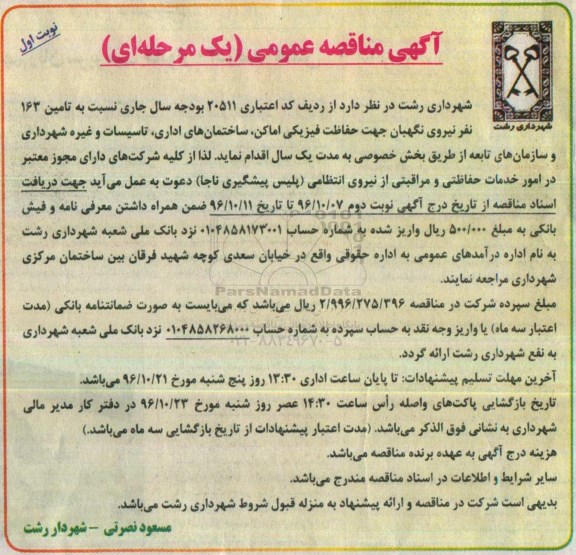 نوبت اول
آگهی مناقصه عمومی (یک مرحله‌ای)
شهرداری رشت
شهرداری رشت در نظر دارد از ردیف کد اعتباری ۲۰۵۱۱ بودجه سال جاری نسبت به تامین ۱۶۳
نفر نیروی نگهبان جهت حفاظت فیزیکی اماکن، ساختمان‌های اداری، تاسیسات و غیره شهرداری
و سازمان‌های تابعه از طریق بخش خصوصی به مدت یک سال اقدام نماید. لذا از کلیه شرکت‌های دارای مجوز معتبر
در امور خدمات حفاظتی و مراقبتی از نیروی انتظامی (پلیس پیشگیری ناجا) دعوت به عمل می‌آید جهت دریافت
اسناد مناقصه از تاریخ درج آگهی نوبت دوم ۹۶/۱۰/۰۷ تا تاریخ ۹۶/۱۰/۱۱ ضمن همراه داشتن معرفی نامه و فیش
بانکی به مبلغ ۵۰۰/۰۰۰ ریال واریز شده به شماره حساب ۰۱۰۴۸۵۸۱۷۳۰۰۱ نزد بانک ملی شعبه شهرداری رشت
به نام اداره درآمدهای عمومی به اداره حقوقی واقع در خیابان سعدی کوچه شهید فرقان بین ساختمان مرکزی
شهرداری مراجعه نمایند.
ParsNamadData
مبلغ سپرده شرکت در مناقصه ۲/۹۹۶/۲۷۵/۳۹۶ ریال می‌باشد که می‌بایست به صورت ضمانتنامه بانکی (مدت
اعتبار سه ماه) یا واریز وجه نقد به حساب سپرده به شماره حساب ۰۱۰۴۸۵۸۲۶۸۰۰۰ نزد بانک ملی شعبه شهرداری
۰۲۱-۸۸۳۴۹۶۷۰-۵
به نفع شهرداری رشت ارائه گردد.
آخرین مهلت تسلیم پیشنهادات: تا پایان ساعت اداری ۱۳:۳۰ روز پنج شنبه مورخ ۹۶/۱۰/۲۱ می‌باشد.
تاریخ بازگشایی پاکت‌های واصله رأس ساعت ۱۴:۳۰ عصر روز شنبه مورخ ۹۶/۱۰/۲۳ در دفتر کار مدیر مالی
شهرداری به نشانی فوق الذکر می‌باشد. (مدت اعتبار پیشنهادات از تاریخ بازگشایی سه ماه می‌باشد.)
هزینه درج آگهی به عهده برنده مناقصه می‌باشد.
سایر شرایط و اطلاعات در اسناد مناقصه مندرج می‌باشد.
بدیهی است شرکت در مناقصه و ارائه پیشنهاد به منزله قبول شروط شهرداری رشت می‌باشد.
مسعود نصرتی – شهردار رشت